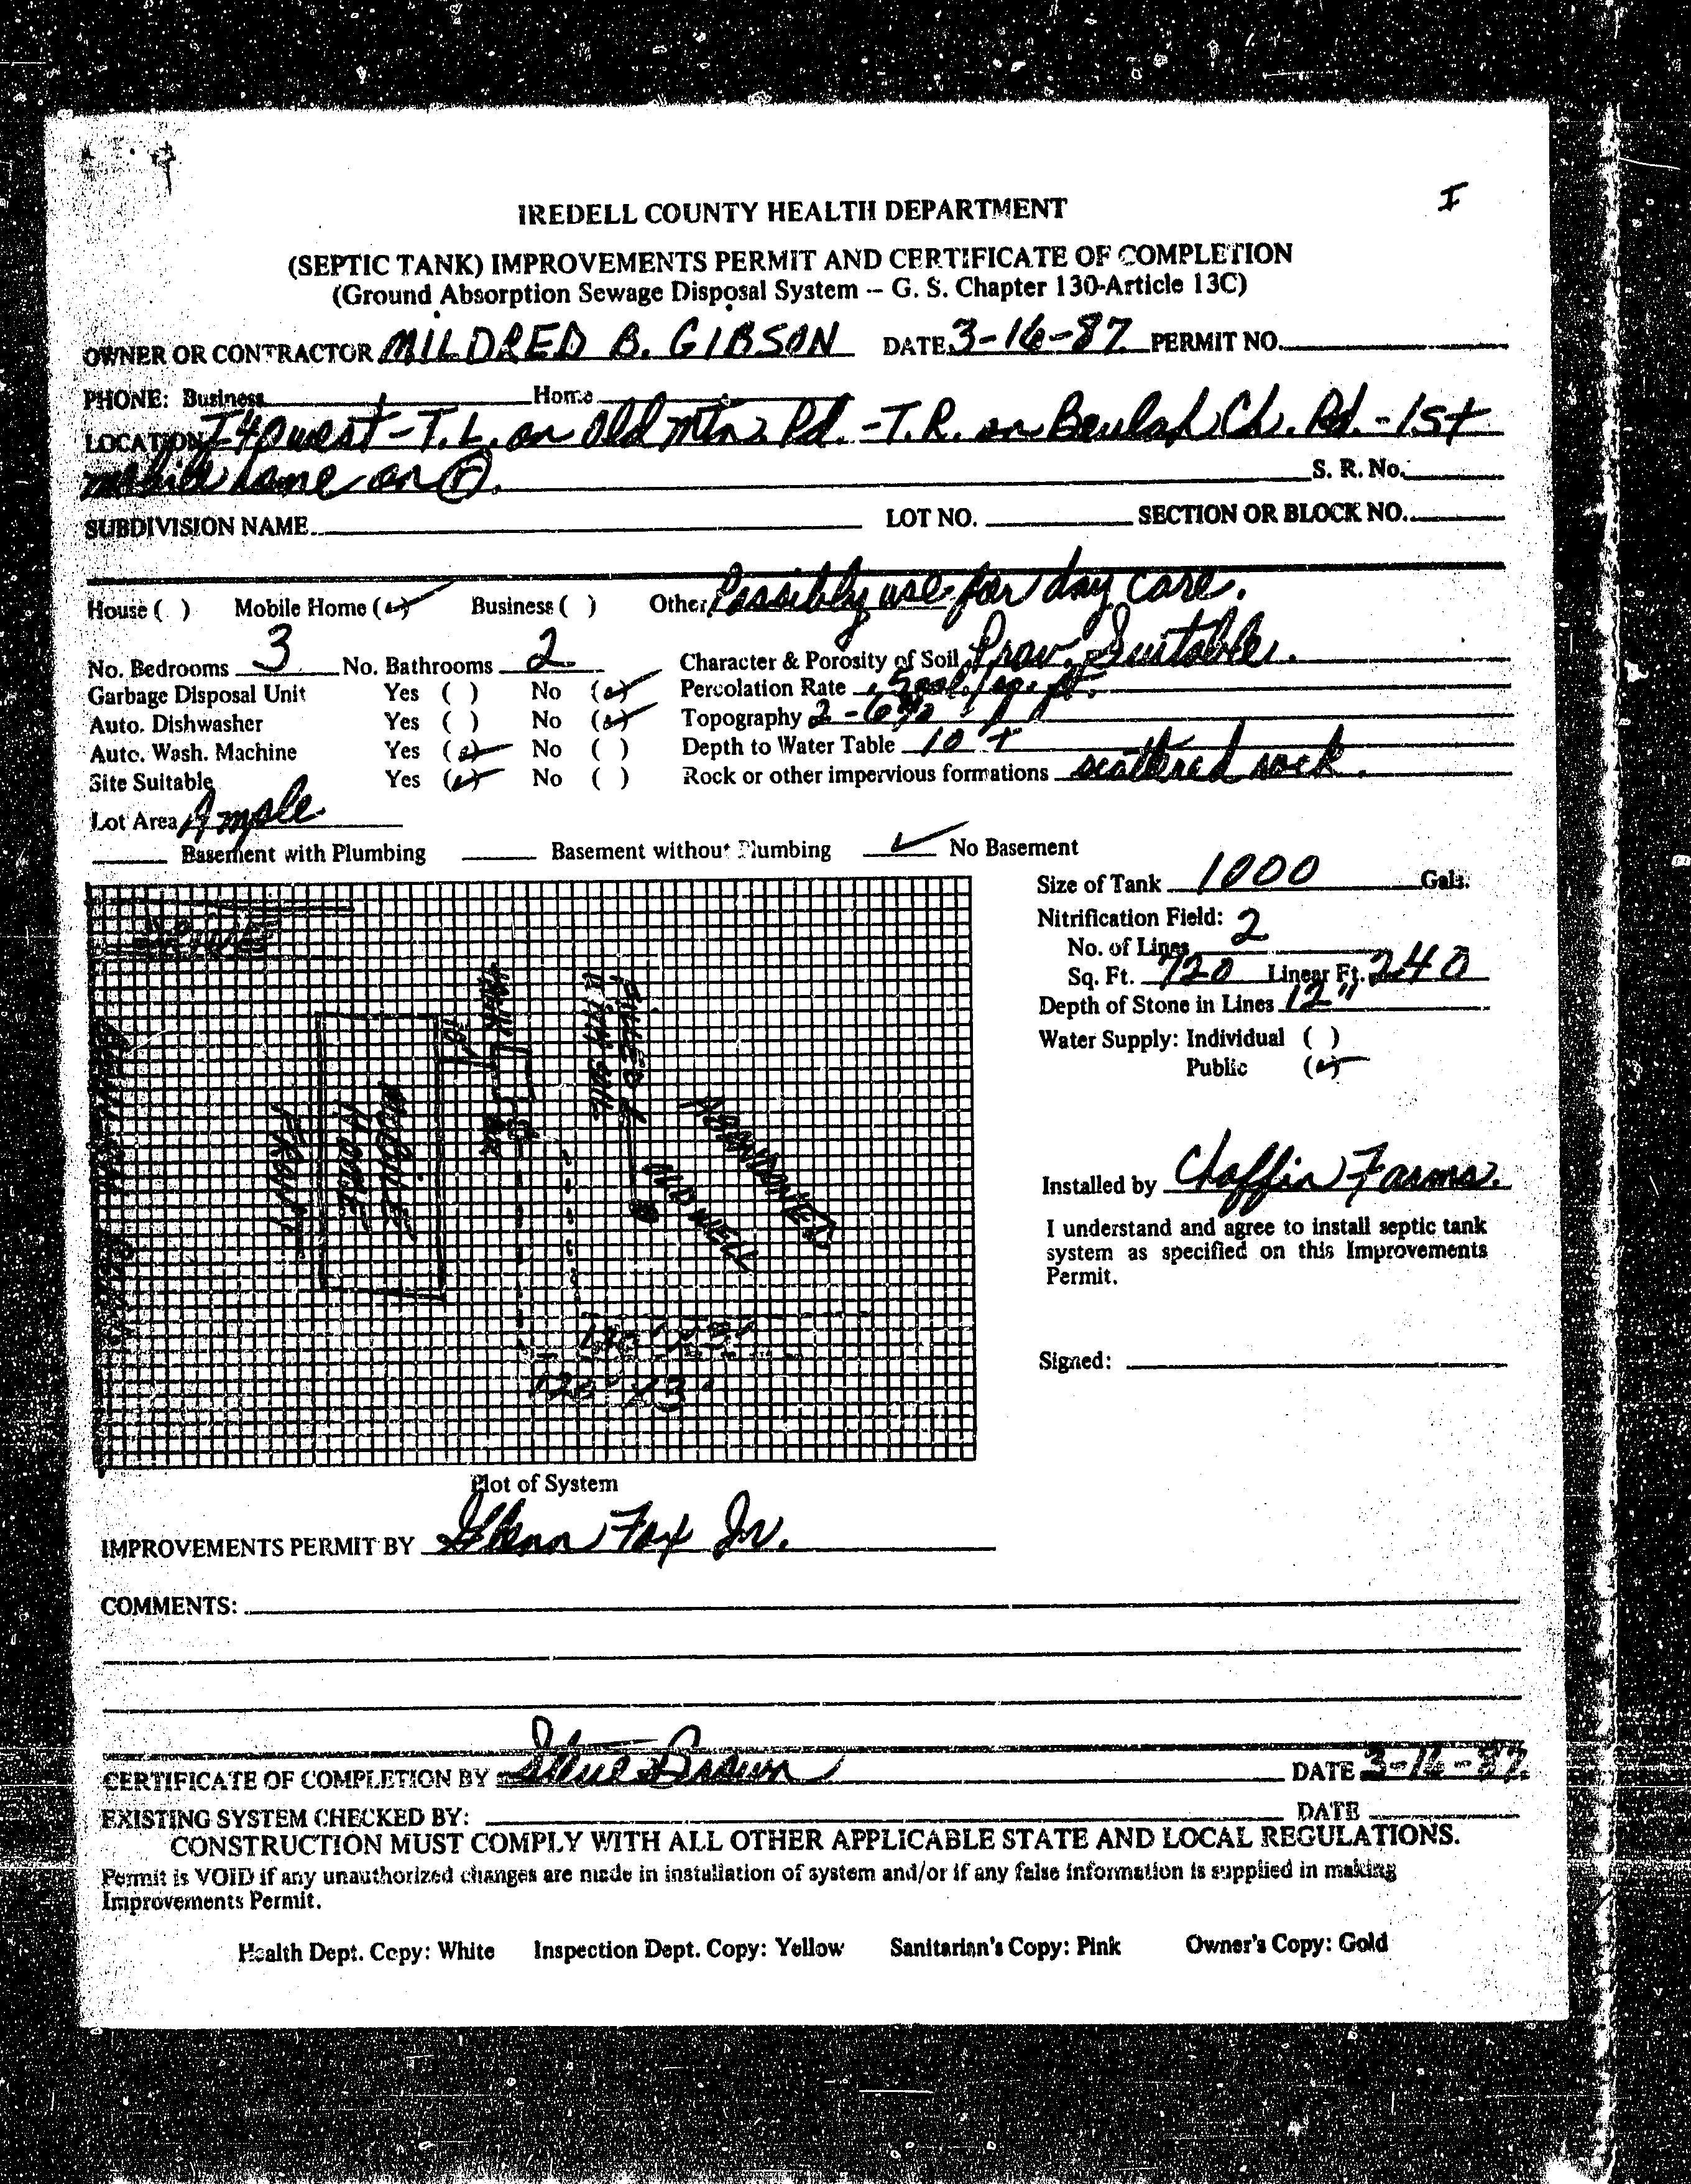 I
IREDELL COUNTY HEALTH DEPARTMENT
(SEPTIC TANK) IMPROVEMENTS PERMIT AND CERTIFICATE OF COMPLETION
(Ground Absorption Sewage Disposal System -- G. S. Chapter 130-Article 13C)
OWNER OR CONTRACTOR MILDRED B. GIBSON DATE 3-16-87 PERMIT NO.
PHONE: Business Home
LOCATION I 40 west - T.L. on Old Mtn. Rd. - T.R. on Beulah Ch. Rd. - 1st
mobile home on R.
S. R. No.
SUBDIVISION NAME LOT NO. SECTION OR BLOCK NO.
House ( ) Mobile Home (✓) Business ( ) Other Possibly use for day care.
No. Bedrooms 3 No. Bathrooms 2 Character & Porosity of Soil Prov. Suitable.
Garbage Disposal Unit Yes ( ) No (✓) Percolation Rate .5 gal./sq. ft.
Auto. Dishwasher Yes ( ) No (✓) Topography 2-6%
Auto. Wash. Machine Yes (✓) No ( ) Depth to Water Table 10' +
Site Suitable Yes (✓) No ( ) Rock or other impervious formations scattered rock.
Lot Area Ample
Basement with Plumbing Basement without Plumbing ✓ No Basement
Size of Tank 1000 Gals.
Nitrification Field:
No. of Lines 2
Sq. Ft. 720 Linear Ft. 240
Depth of Stone in Lines 12"
Water Supply: Individual ( )
Public (✓)
TANK
10'
FILLED
WITH
ABANDONED
OLD WELL
MOBILE
HOME
FRONT
120' x 3'
120' x 3'
Installed by Chaffin Farms.
I understand and agree to install septic tank
system as specified on this Improvements
Permit.
Signed:
Plot of System
IMPROVEMENTS PERMIT BY Glenn Fox Jr.
COMMENTS:
CERTIFICATE OF COMPLETION BY Steve Brown DATE 3-16-87
EXISTING SYSTEM CHECKED BY: DATE
CONSTRUCTION MUST COMPLY WITH ALL OTHER APPLICABLE STATE AND LOCAL REGULATIONS.
Permit is VOID if any unauthorized changes are made in installation of system and/or if any false information is supplied in making
Improvements Permit.
Health Dept. Copy: White Inspection Dept. Copy: Yellow Sanitarian's Copy: Pink Owner's Copy: Gold